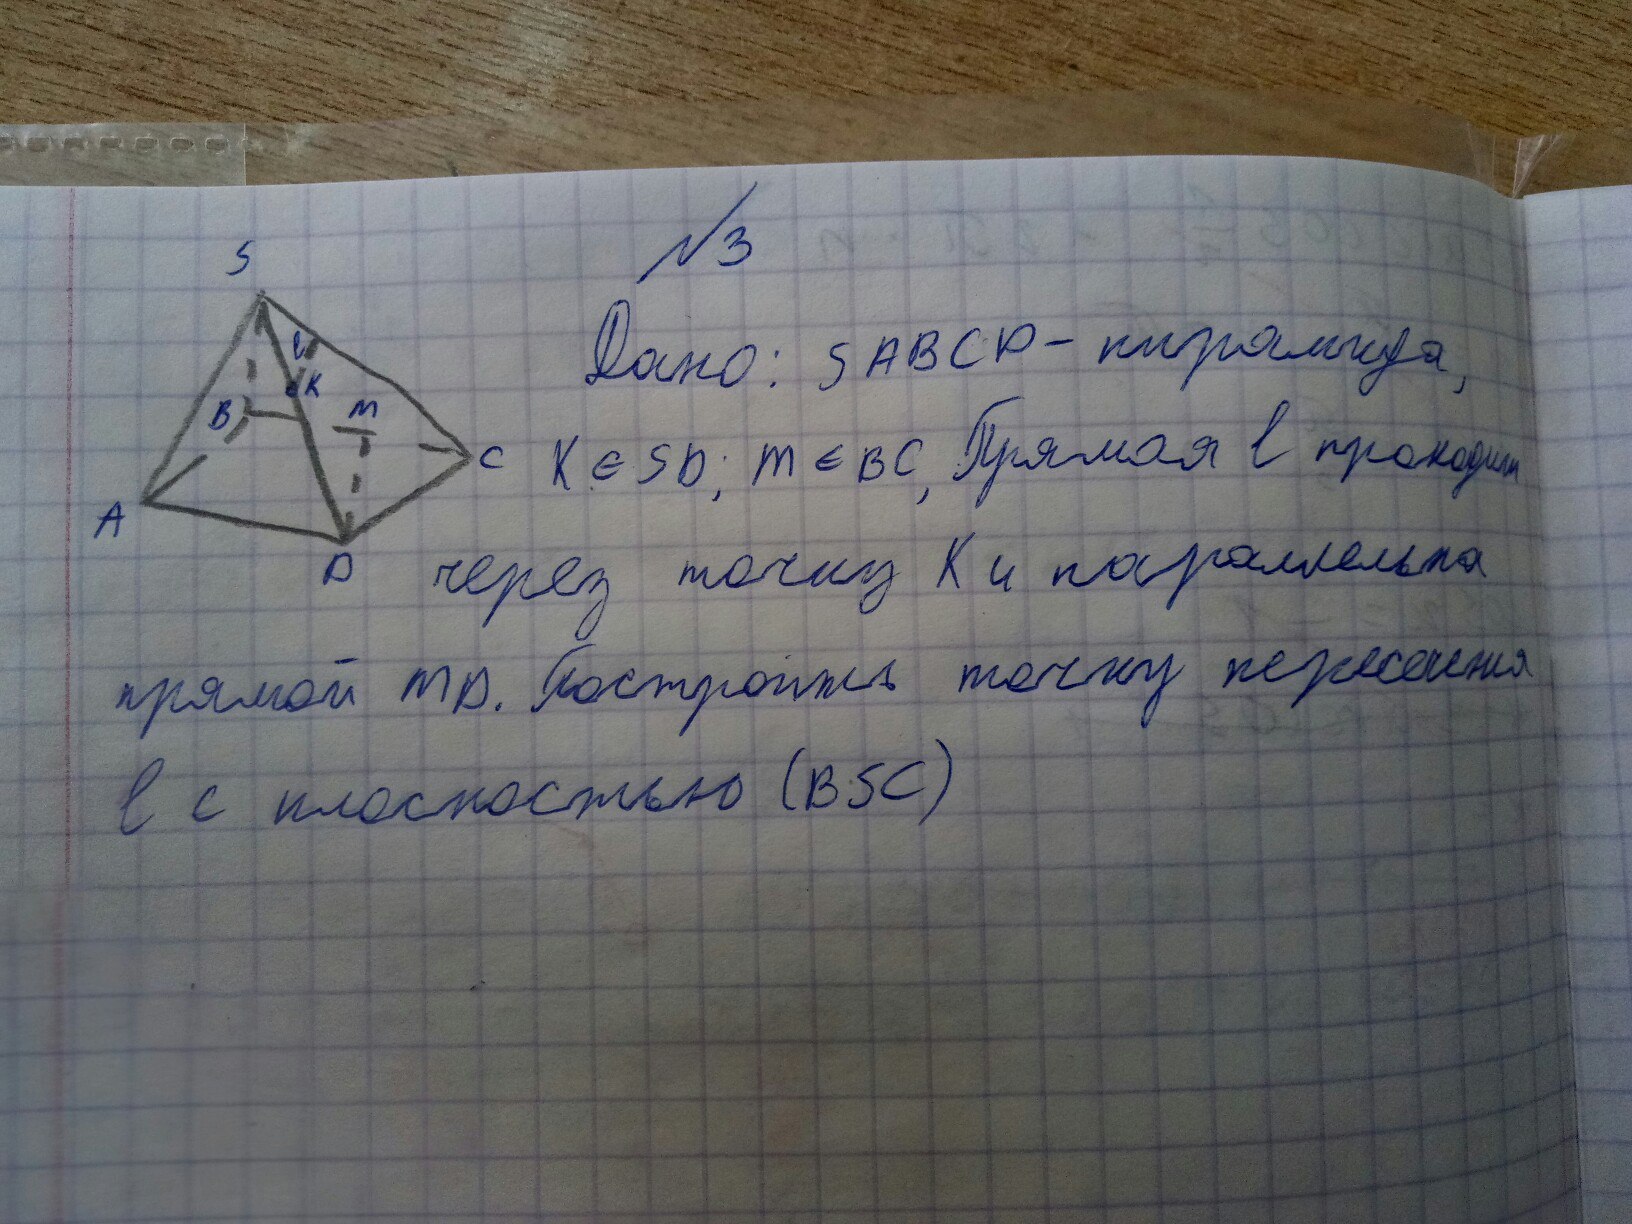 №3
S
l
K
B
M
C
A
D
Дано: SABCD - пирамида,
K ∈ SD; M ∈ BC, Прямая l проходит
через точку K и параллельна
прямой MD. Построить точку пересечения
l с плоскостью (BSC)